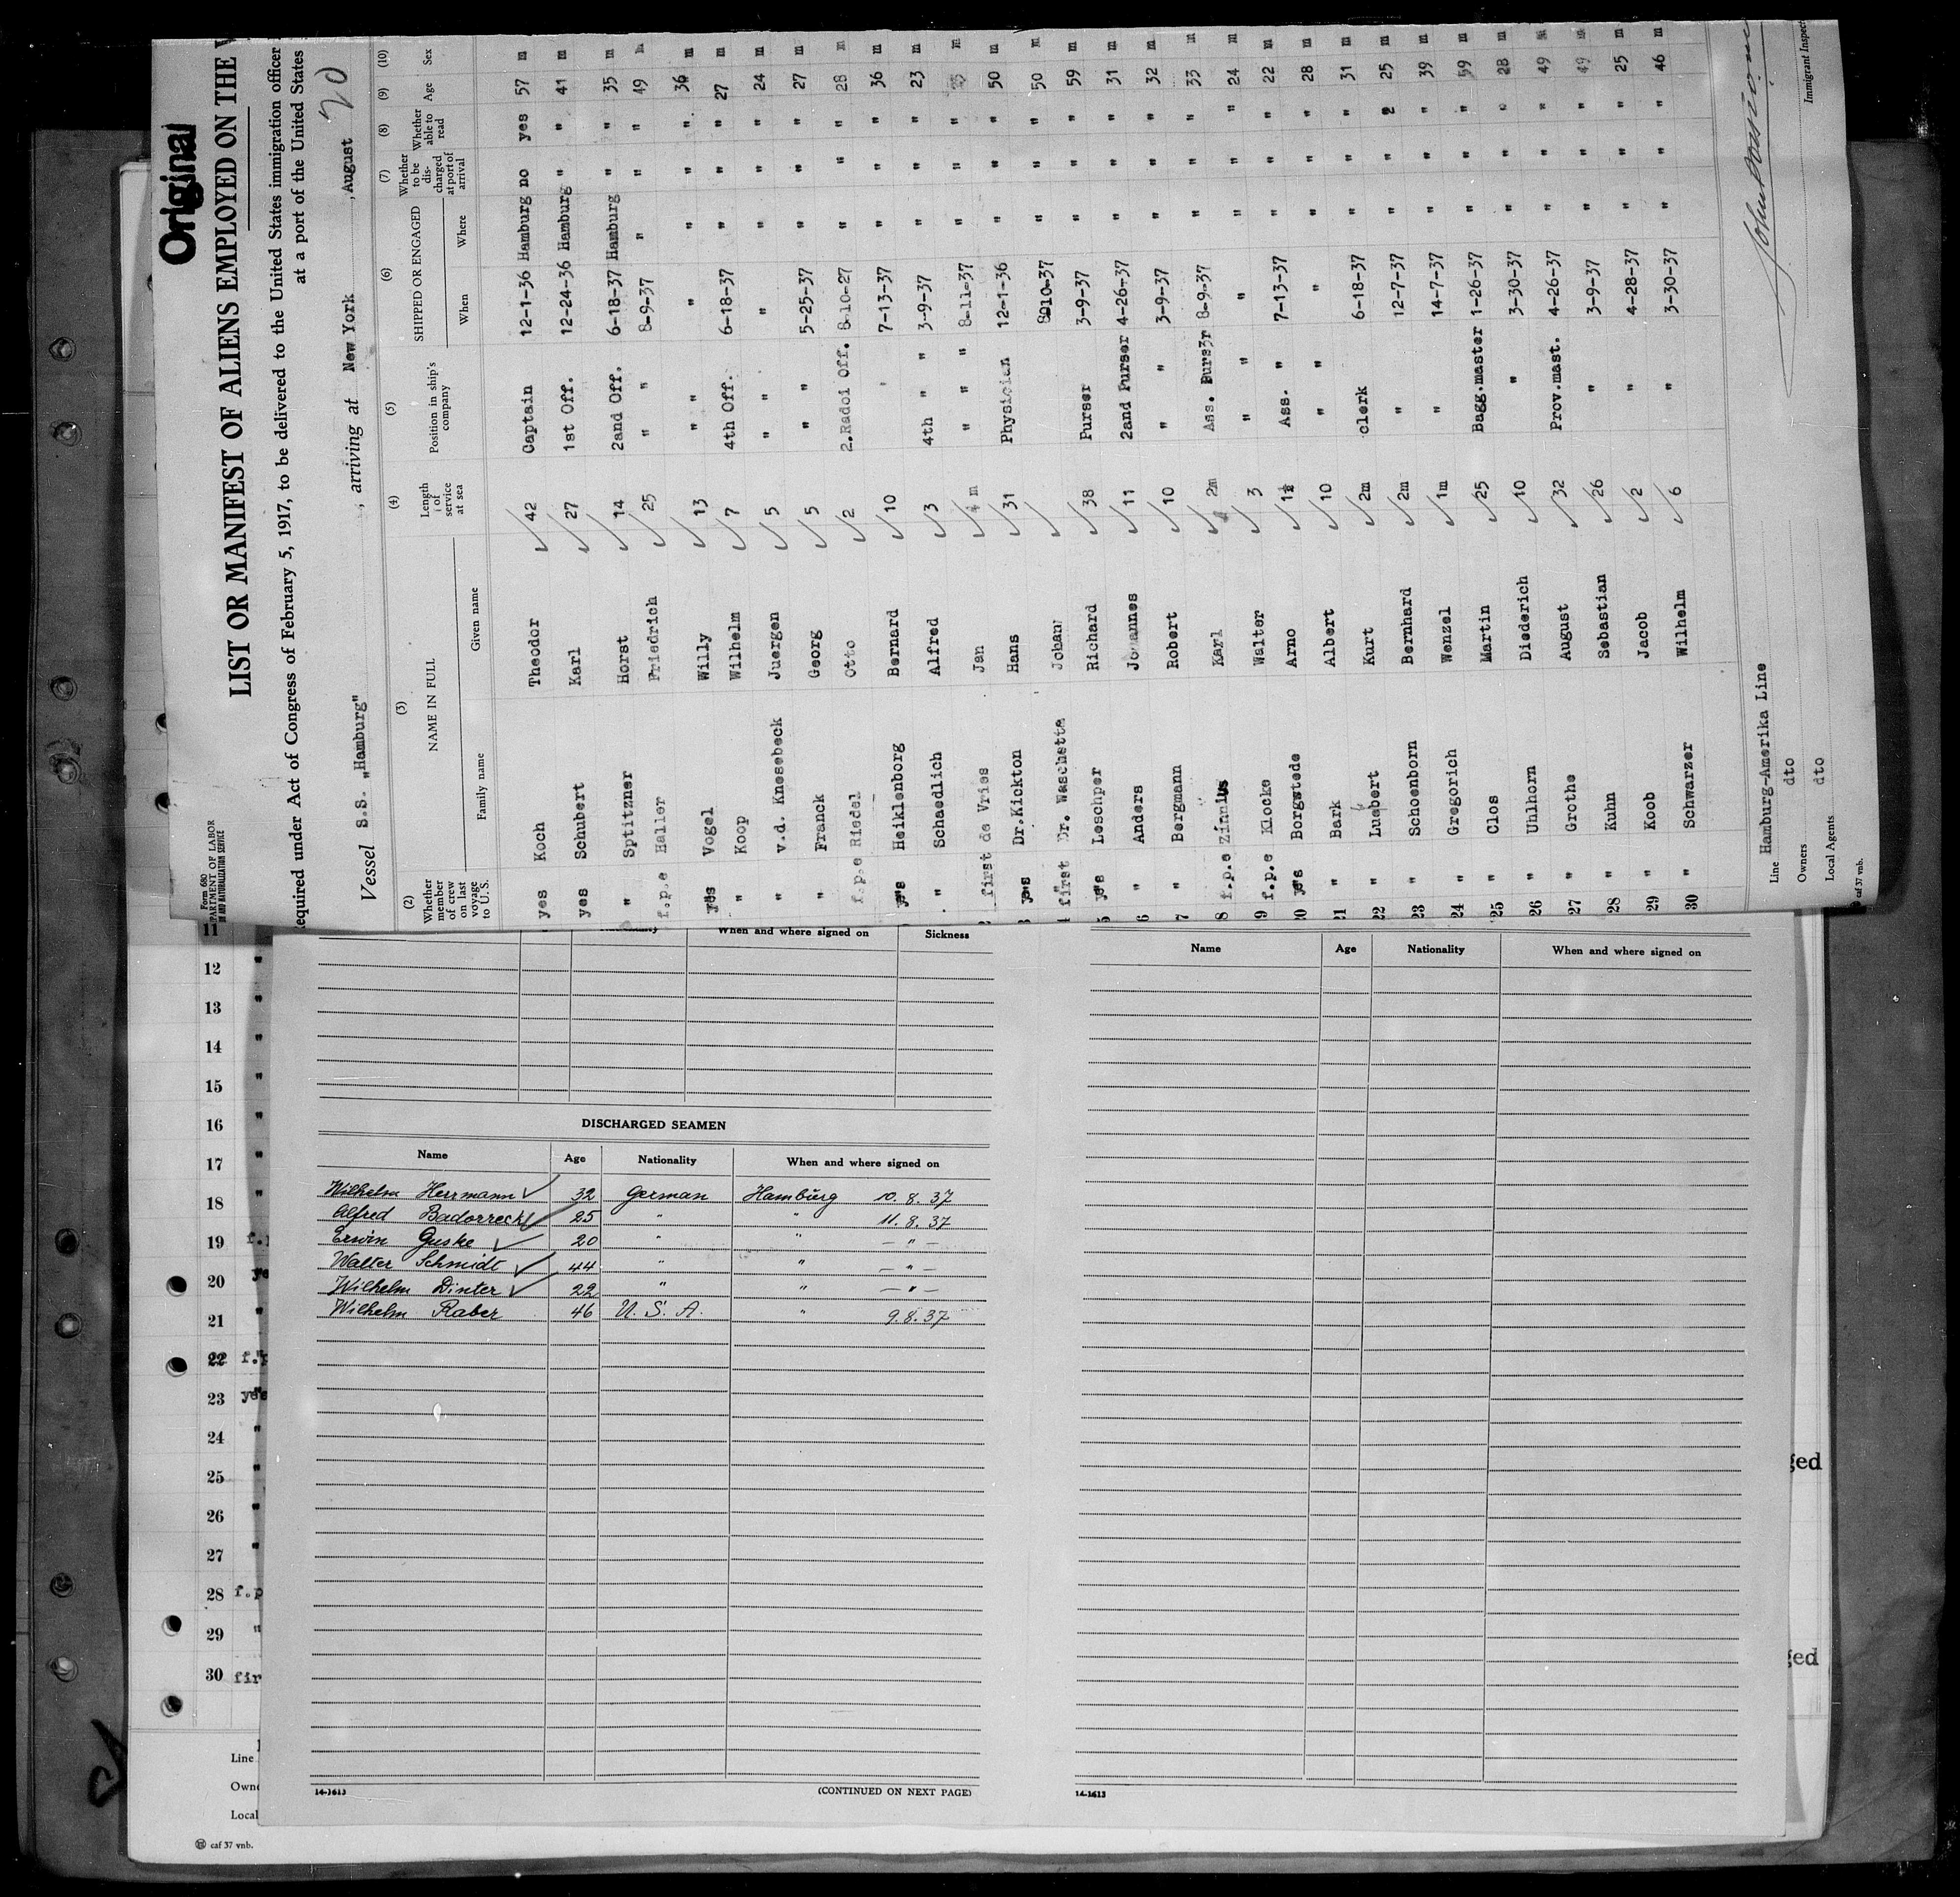 Original
Form 680
LIST OR MANIFEST OF ALIENS EMPLOYED ON THE
Required under Act of Congress of February 5, 1917, to be delivered to the United States immigration officer
at a port of the United States
Vessel S.S. „Hamburg" , arriving at New York , August 20
(2) (3) (4) (5) (6) (7) (8) (9) (10)
Whether member of crew on last voyage to U.S. NAME IN FULL Family name Given name Length of service at sea Position in ship's company SHIPPED OR ENGAGED When Where Whether to be discharged at port of arrival Whether able to read Age Sex
yes Koch Theodor 42 Captain 12-1-36 Hamburg no yes 57 m
yes Schubert Karl 27 1st Off. 12-24-36 Hamburg " " 41 m
" Sptitzner Horst 14 2and Off. 6-18-37 Hamburg " " 35 m
f.p.e Haller Friedrich 25 " " 8-9-37 " " " 49 m
yes Vogel Willy 13 " " " " " " 36 m
" Koop Wilhelm 7 4th Off. 6-18-37 " " " 27 m
" v.d. Knesebeck Juergen 5 " " " " " " 24 m
" Franck Georg 5 " " 5-25-37 " " " 27 m
f.p.e Riedel Otto 2 2.Radoi Off. 8-10-27 " " " 28 m
yes Heiklenborg Bernard 10 " 7-13-37 " " " 36 m
" Schaedlich Alfred 3 4th " " 3-9-37 " " " 23 m
first de Vries Jan m " " " 8-11-37 " " " m
3 yes Dr.Kickton Hans 31 Physician 12-1-36 " " " 50 m
4 first Dr. Waschetta Johan 8-10-37 " " " 50 m
5 yes Leschper Richard 38 Purser 3-9-37 " " " 59 m
6 " Anders Johannes 11 2and Purser 4-26-37 " " " 31 m
7 " Bergmann Robert 10 " " 3-9-37 " " " 32 m
8 f.p.e Zinnius Karl 2m Ass. Purs3r 8-9-37 " " " 33 m
9 f.p.e Klocke Walter 3 " " " " " " 24 m
20 yes Borgstede Arno 1½ Ass. " 7-13-37 " " " 22 m
21 " Bark Albert 10 " " " " " " 28 m
22 " Luebert Kurt 2m clerk 6-18-37 " " " 31 m
23 " Schoenborn Bernhard 2m " 12-7-37 " " 2 25 m
24 " Gregorich Wenzel 1m " 14-7-37 " " " 39 m
25 " Clos Martin 25 Bagg.master 1-26-37 " " " 59 m
26 " Uhlhorn Diederich 10 " 3-30-37 " " " 28 m
27 " Grothe August 32 Prov.mast. 4-26-37 " " " 49 m
28 " Kuhn Sebastian 26 " 3-9-37 " " " 49 m
29 " Koob Jacob 2 " 4-28-37 " " " 25 m
30 " Schwarzer Wilhelm 6 " 3-30-37 " " " 46 m
Line Hamburg-Amerika Line
Owners dto
Local Agents dto
Immigrant Inspect
caf 37 vnb.
When and where signed on Sickness
DISCHARGED SEAMEN
Name Age Nationality When and where signed on
Wilhelm Herrmann 32 German Hamburg 10.8.37
Alfred Badorreck 25 " " 11.8.37
Erwin Guske 20 " " — " —
Walter Schmidt 44 " " — " —
Wilhelm Dinter 22 " " — " —
Wilhelm Raber 46 U.S.A. " 9.8.37
14-1613 (CONTINUED ON NEXT PAGE)
Name Age Nationality When and where signed on
14-1613
11
12 "
13 "
14 "
15 "
16 "
17 "
18 "
19 f.
20 ye
21 "
22 f.p
23 yes
24 "
25 "
26 "
27 "
28 f.p
29 "
30 fir
Line
Own
Local
caf 37 vnb.
ged
ged